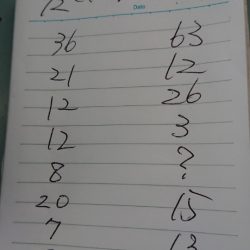 Date
36 63
21 12
12 26
12 3
8 ?
20 15
7 13